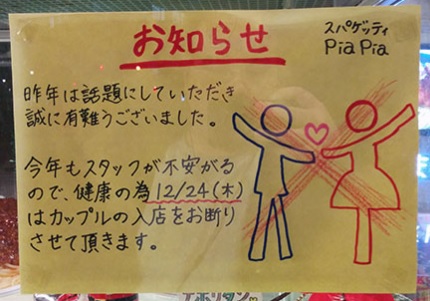 お知らせ
スパゲッティ
PiaPia
昨年は話題にしていただき
誠に有難うございました。
今年もスタッフが不安がる
ので、健康の為12/24(木)
はカップルの入店をお断り
させて頂きます。